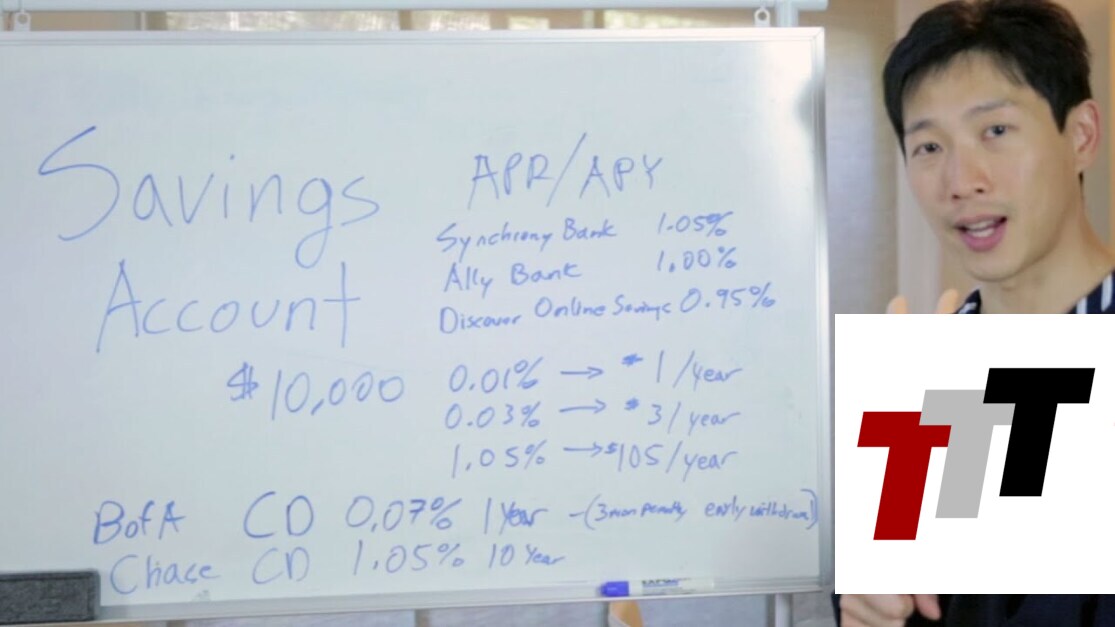 Savings
Account
$10,000
APR/APY
Synchrony Bank 1.05%
Ally Bank 1.00%
Discover Online Savings 0.95%
0.01% → $1/year
0.03% → $3/year
1.05% → $105/year
BofA CD 0.07% 1 Year -(3 mon penalty early withdrawal)
Chase CD 1.05% 10 Year
TTT